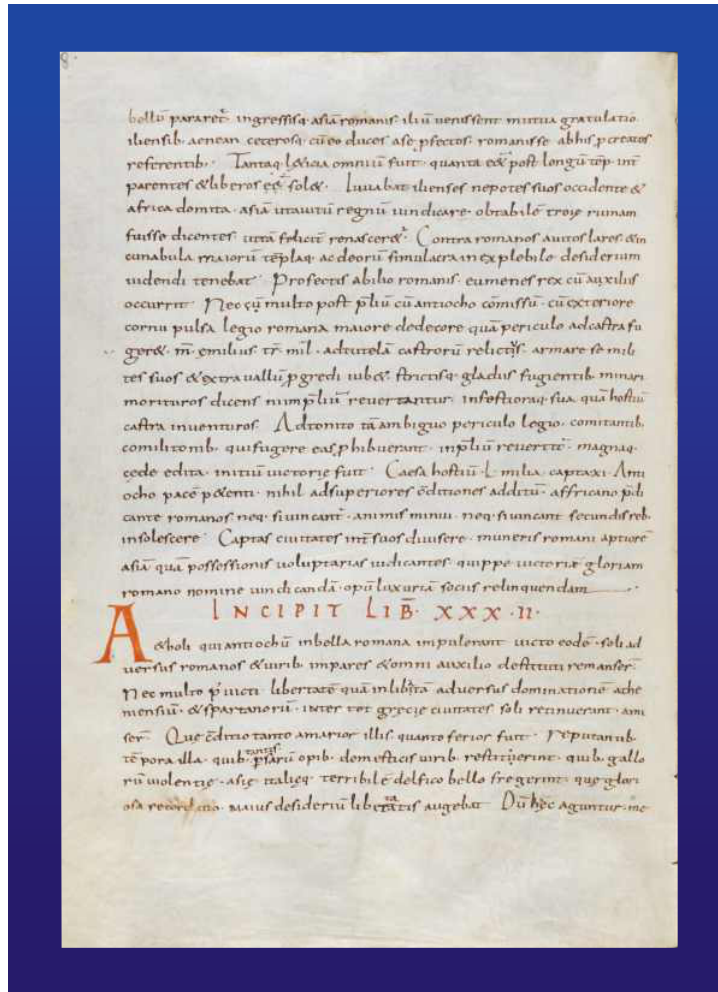 bellū pararet̄ · ingressisq· asiā romanis · iliū venissent mutua gratulatio
iliensib· aenean ceterosq· cū eo duces a se pfectos · romanis se ab his pcreatos
referentib· Tantaq· lęticia omniū fuit · quanta eē post longū tēp· int̄
parentes & liberos solet · Iuuabat ilienses nepotes suos occidente &
africa domita · asiā ut auitū regnū uindicare · obtabilē troię ruinam
fuisse dicentes ut tā feliciť renasceret̄ · Contra romanos auitos lares & in
cunabula maiorū tēplaq· ac deorū simulacra inexplebile desiderium
uidendi tenebat · Profectis ab ilio romanis · eumenes rex cū auxiliis
occurrit · Nec cū multo post pliū cū antiocho cōmissū · cū exteriore
cornu pulsa legio romana maiore dedecore quā periculo ad castra fu
geret · m̄ · emilius tr̄ · mil̄ · ad tutelā castrorū relictus · armare se mili
tes suos & extra uallū pgredi iubet · strictisq· gladiis fugientib· minari
morituros dicens ni in pliū reuertantur · infestioraq· sua quā hostiū
castra inuenturos · Adtonito tā ambiguo periculo legio · comitantib·
comilitonib· qui fugere eas phibuerant · in pliū reuertit̄ · magnaq·
cęde edita · initiū uictorię fuit · Caesa hostiū · L · milia · capta xi · Anti
ocho pacē petenti · nihil ad superiores c̄ditiones additū · affricano p̄di
cante romanos neq· si uincant̄ · animis minui · neq· si uincant secundis reb·
insolescere · Captas ciuitates int̄ suos diuisere · muneris romani aptiorē
asiā quā possessionis uoluptarias iudicantes · quippe uictorię gloriam
romano nomine uindicandā · opū luxuriā sociis relinquendam
INCIPIT LIB̄ · XXX · II ·
Aetholi qui antiochū in bella romana impulerant · uicto eodē · soli ad
uersus romanos & uirib· impares & omni auxilio destituti remanser̄
Nec multo p̄ uicti · libertatē quā inlibatā aduersus dominationē athe
niensiū · & spartanorū · inter tot gręcię ciuitates soli retinuerant · ami
ser̄ · Quę c̄ditio tanto amarior illis · quanto serior fuit · Reputantib·
tēpora illa · quib· tantis psarū opib· domesticis uirib· restiterint · quib· gallo
rū uiolentię · asię italięq· terribilē delfico bello fregerint · quę glori
osa recordatio · maius desideriū libertatis augebat · Dū hęc aguntur · me